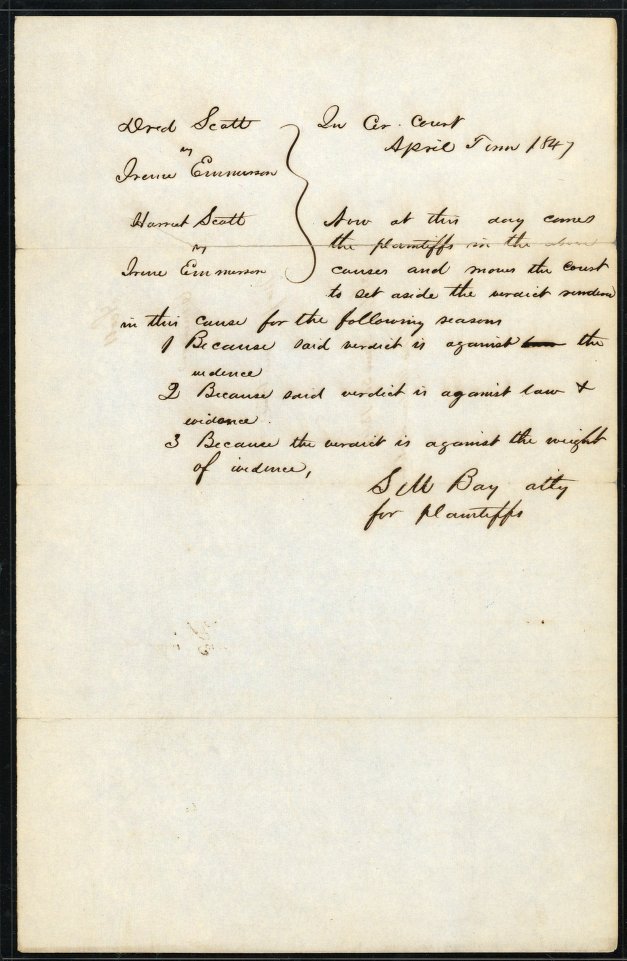 Dred Scott
vs
Irene Emmerson
Harriet Scott
vs
Irene Emmerson
In Cir. Court
April Term 1847
Now at this day comes
the plaintiffs in the above
causes and moves the court
to set aside the verdict rendered
in this cause for the following reasons
1 Because said verdict is against the
evidence
2 Because said verdict is against law &
evidence.
3 Because the verdict is against the weight
of evidence,
S M Bay atty
for plaintiffs